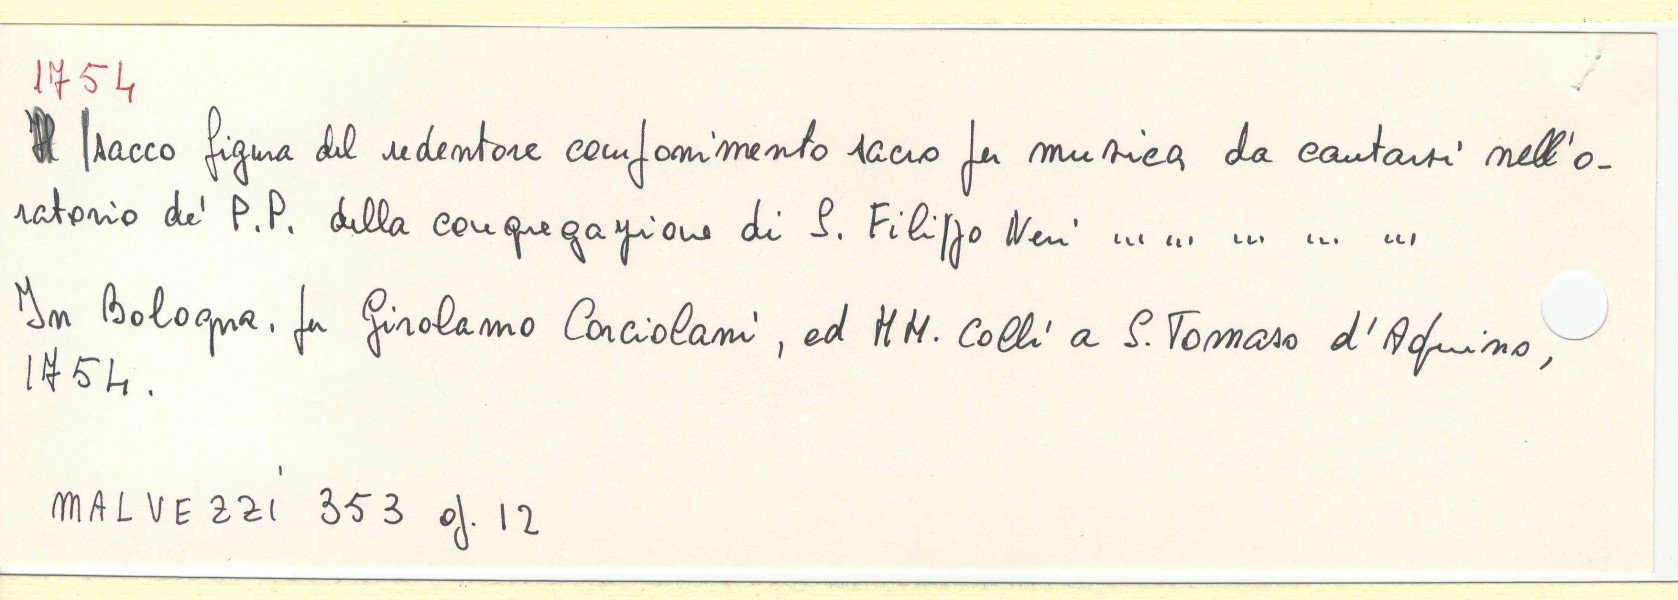 1754
Isacco figura del redentore componimento sacro per musica da cantarsi nell'o-
ratorio de' P.P. della congregazione di S. Filippo Neri ... ... ... ... ...
In Bologna. per Girolamo Corciolani, ed HH. Colli a S. Tomaso d'Aquino,
1754.
MALVEZZI 353 op. 12